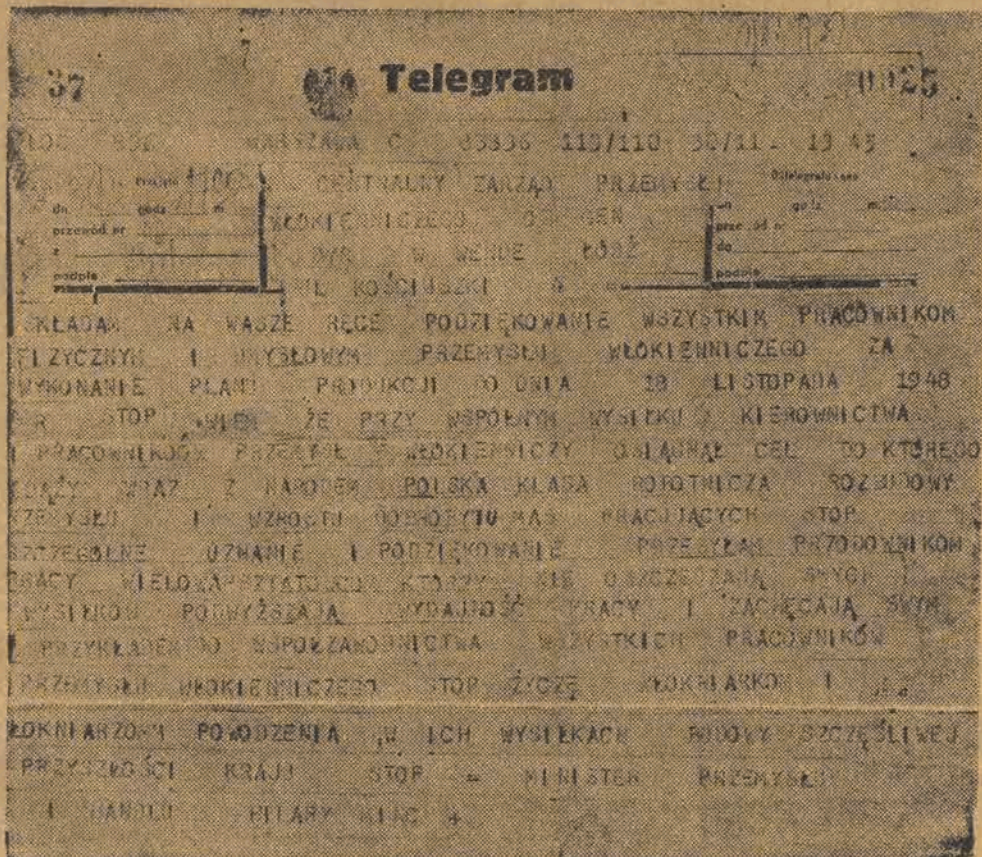 37 Telegram 0025
WARSZAWA C 83836 113/110 30/11 - 13 45
CENTRALNY ZARZĄD PRZEMYSŁU
dn godz m
przewód nr
WŁÓKIENNICZEGO
do
W WENDE ŁÓDŹ
podpis podpis
KOŚCIUSZKI 4 =
SKŁADAM NA WASZE RĘCE PODZIĘKOWANIE WSZYSTKIM PRACOWNIKOM
FIZYCZNYM I UMYSŁOWYM PRZEMYSŁU WŁÓKIENNICZEGO ZA
WYKONANIE PLANU PRODUKCJI DO DNIA 18 LISTOPADA 1948
R STOP WIEM ŻE PRZY WSPÓLNYM WYSIŁKU KIEROWNICTWA
I PRACOWNIKÓW PRZEMYSŁ WŁÓKIENNICZY OSIĄGNĄŁ CEL DO KTÓREGO
DĄŻY WRAZ Z NARODEM POLSKA KLASA ROBOTNICZA ROZBUDOWY
RZEMYSŁU I WZROSTU DOBROBYTU MAS PRACUJĄCYCH STOP
SZCZEGÓLNE UZNANIE I PODZIĘKOWANIE PRZESYŁAM PRZODOWNIKOM
PRACY KTÓRZY NIE OSZCZĘDZAJĄ SWYCH
WYSIŁKÓW PODWYŻSZAJĄ WYDAJNOŚĆ PRACY I ZACHĘCAJĄ SWYM
PRZYKŁADEM DO WSPÓŁZAWODNICTWA WSZYSTKICH PRACOWNIKÓW
PRZEMYSŁU WŁÓKIENNICZEGO STOP ŻYCZĘ WŁÓKNIARKOM I
ŁÓKNIARZOM POWODZENIA W ICH WYSIŁKACH BUDOWY SZCZĘŚLIWEJ
PRZYSZŁOŚCI KRAJU STOP = MINISTER PRZEMYSŁU
I HANDLU HILARY MINC +